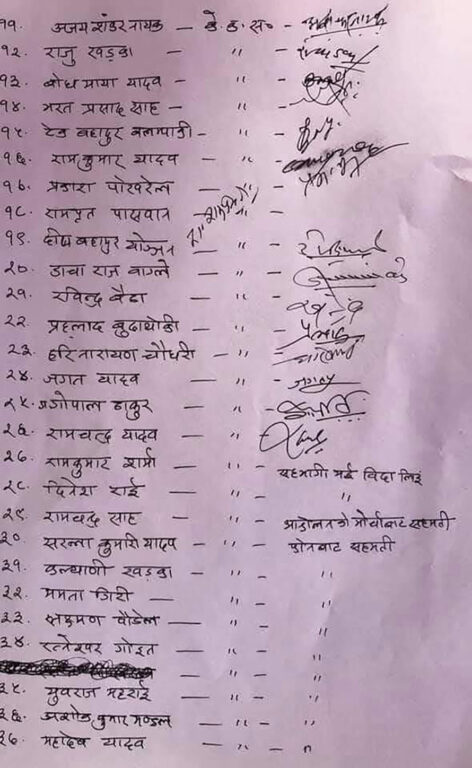 ११. अजय शंकर नायक - के. क. स० -
१२. राजु खड्का - " -
१३. बोध माया यादव - " -
१४. भरत प्रसाद साह - " -
१५. टेक बहादुर - " -
१६. राम कुमार यादव - " -
१७. प्रकाश पोखरेल - " -
१८. रामपृत पासवान - " -
१९. दीप बहादुर - " -
२०. डाबा राज वाग्ले - " -
२१. रविन्द्र बैठा - " -
२२. प्रहलाद बुढाथोकी - " -
२३. हरिनारायण चौधरी - " -
२४. जगत यादव - " -
२५. ठाकुर - " -
२६. रामचन्द्र यादव - "
२७. रामकुमार शर्मा - " - सहभागी भई विदा लिई
२८. दिनेश राई - " - "
२९. रामचन्द्र साह - " - आन्दोलनको मोर्चाबाट सहमती
३०. सरला कुमारी यादव - " - फोनबाट सहमती
३१. कल्याणी खड्का - " - "
३२. ममता गिरी - " - "
३३. लक्ष्मण पौडेल - " - "
३४. रत्नेश्वर गोइत - " - "
३५. युवराज महर्राई - " - "
३६. अशोक कुमार मण्डल - " - "
३७. महादेव यादव - " - "